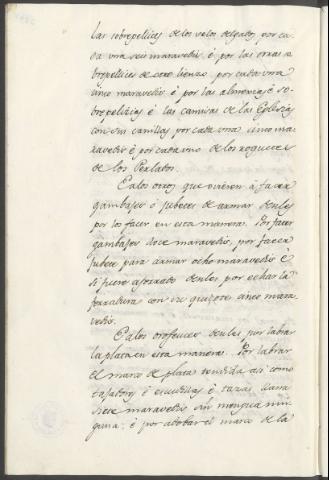 las sobrepellices de los velos delgados por ca
da una seis maravedis, è por las otras so
brepellices de otro lienzo por cada una
cinco maravedis è por las almexias è so
brepelizias è las camisas de las Eglesias
con sus camillas por cada una cinco ma
ravedis è por cada uno de los roquetes
de los Perlados.
E a los otros que vinieren à facer
gambajes ò jubetes de armar denles
por los facer en esta manera. Por facer
gambajes doce maravedis, por facer
jubete para armar ocho maravedis è
si fuere aforrado denles por echar la
ferradura con su quixote cinco mara
vedis.
E a los orofeses denles por labrar
la plata en esta manera. Por labrar
el marco de plata tendida asi como
tajadores è escudillas è tazas llanas
siete maravedis sin mengua nin
guna: è por adobar el marco de la